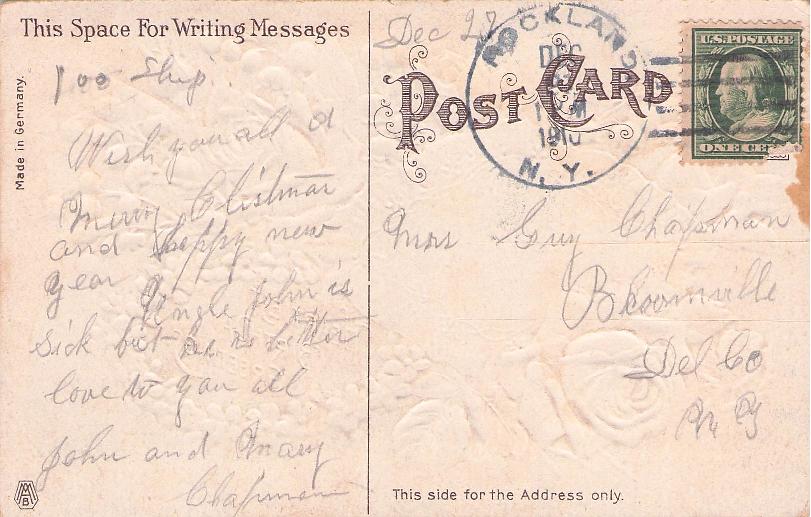 This Space For Writing Messages
Made in Germany.
Wish you all a
Merry Christmas
and happy new
year
Ungle John is
Sick but he is better
love to you all
John and Mary
Chapman
Dec 27
ROCKLAND
DEC
1910
N. Y.
POST CARD
U.S. POSTAGE
ONE CENT
Mrs Guy Chapman
Bloomville
Del Co
N Y
This side for the Address only.